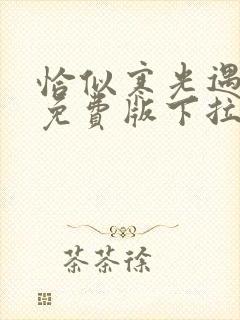 恰似寒光遇
免费版下拉
茶茶徐